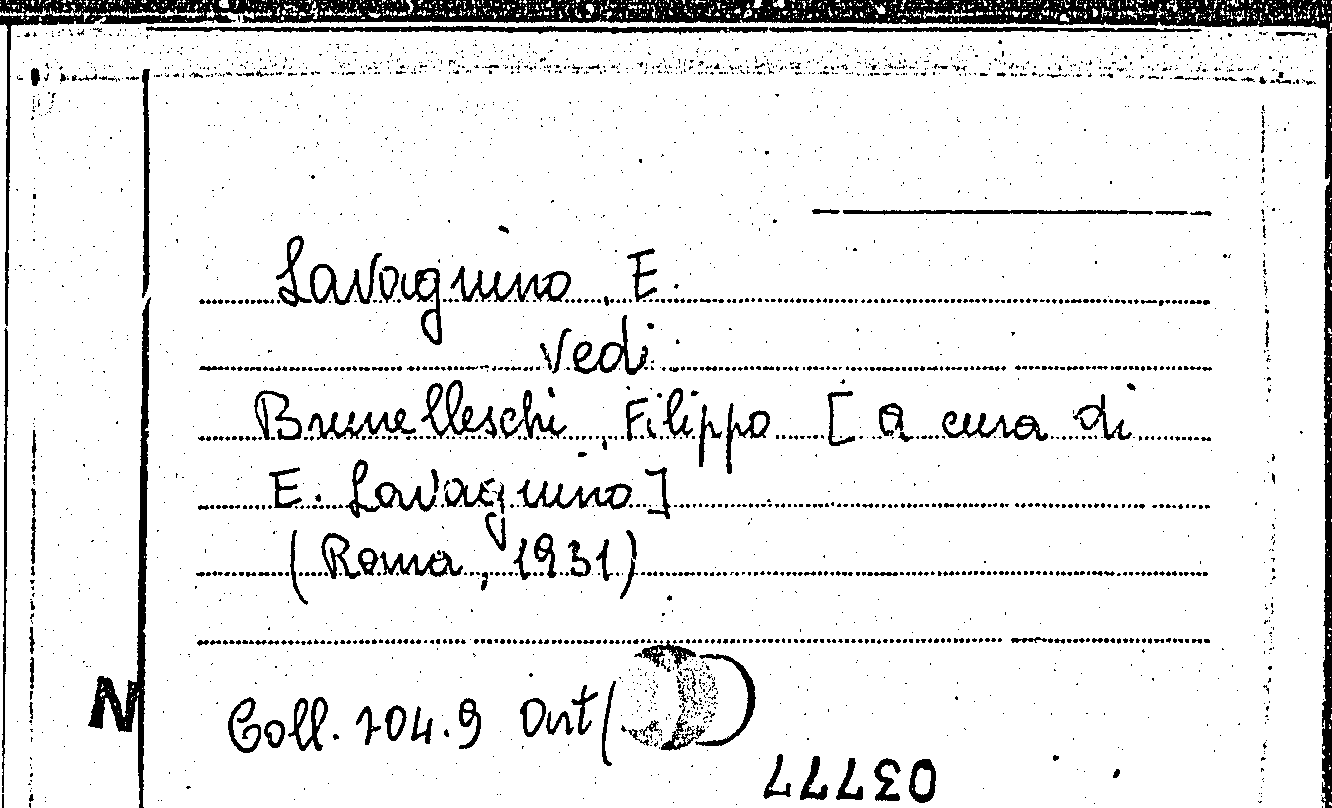 Lavagnino, E.
vedi
Brunelleschi, Filippo [a cura di
E. Lavagnino]
(Roma, 1931)
N
Coll. 704.9 Art/
03777